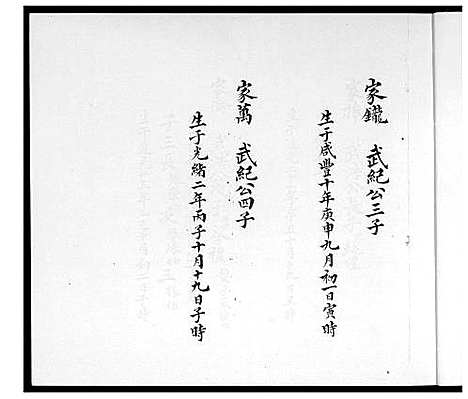 家鑨 武紀公三子
生于咸豐十年庚申九月初一日寅時
家萬 武紀公四子
生于光緒二年丙子十月十九日子時